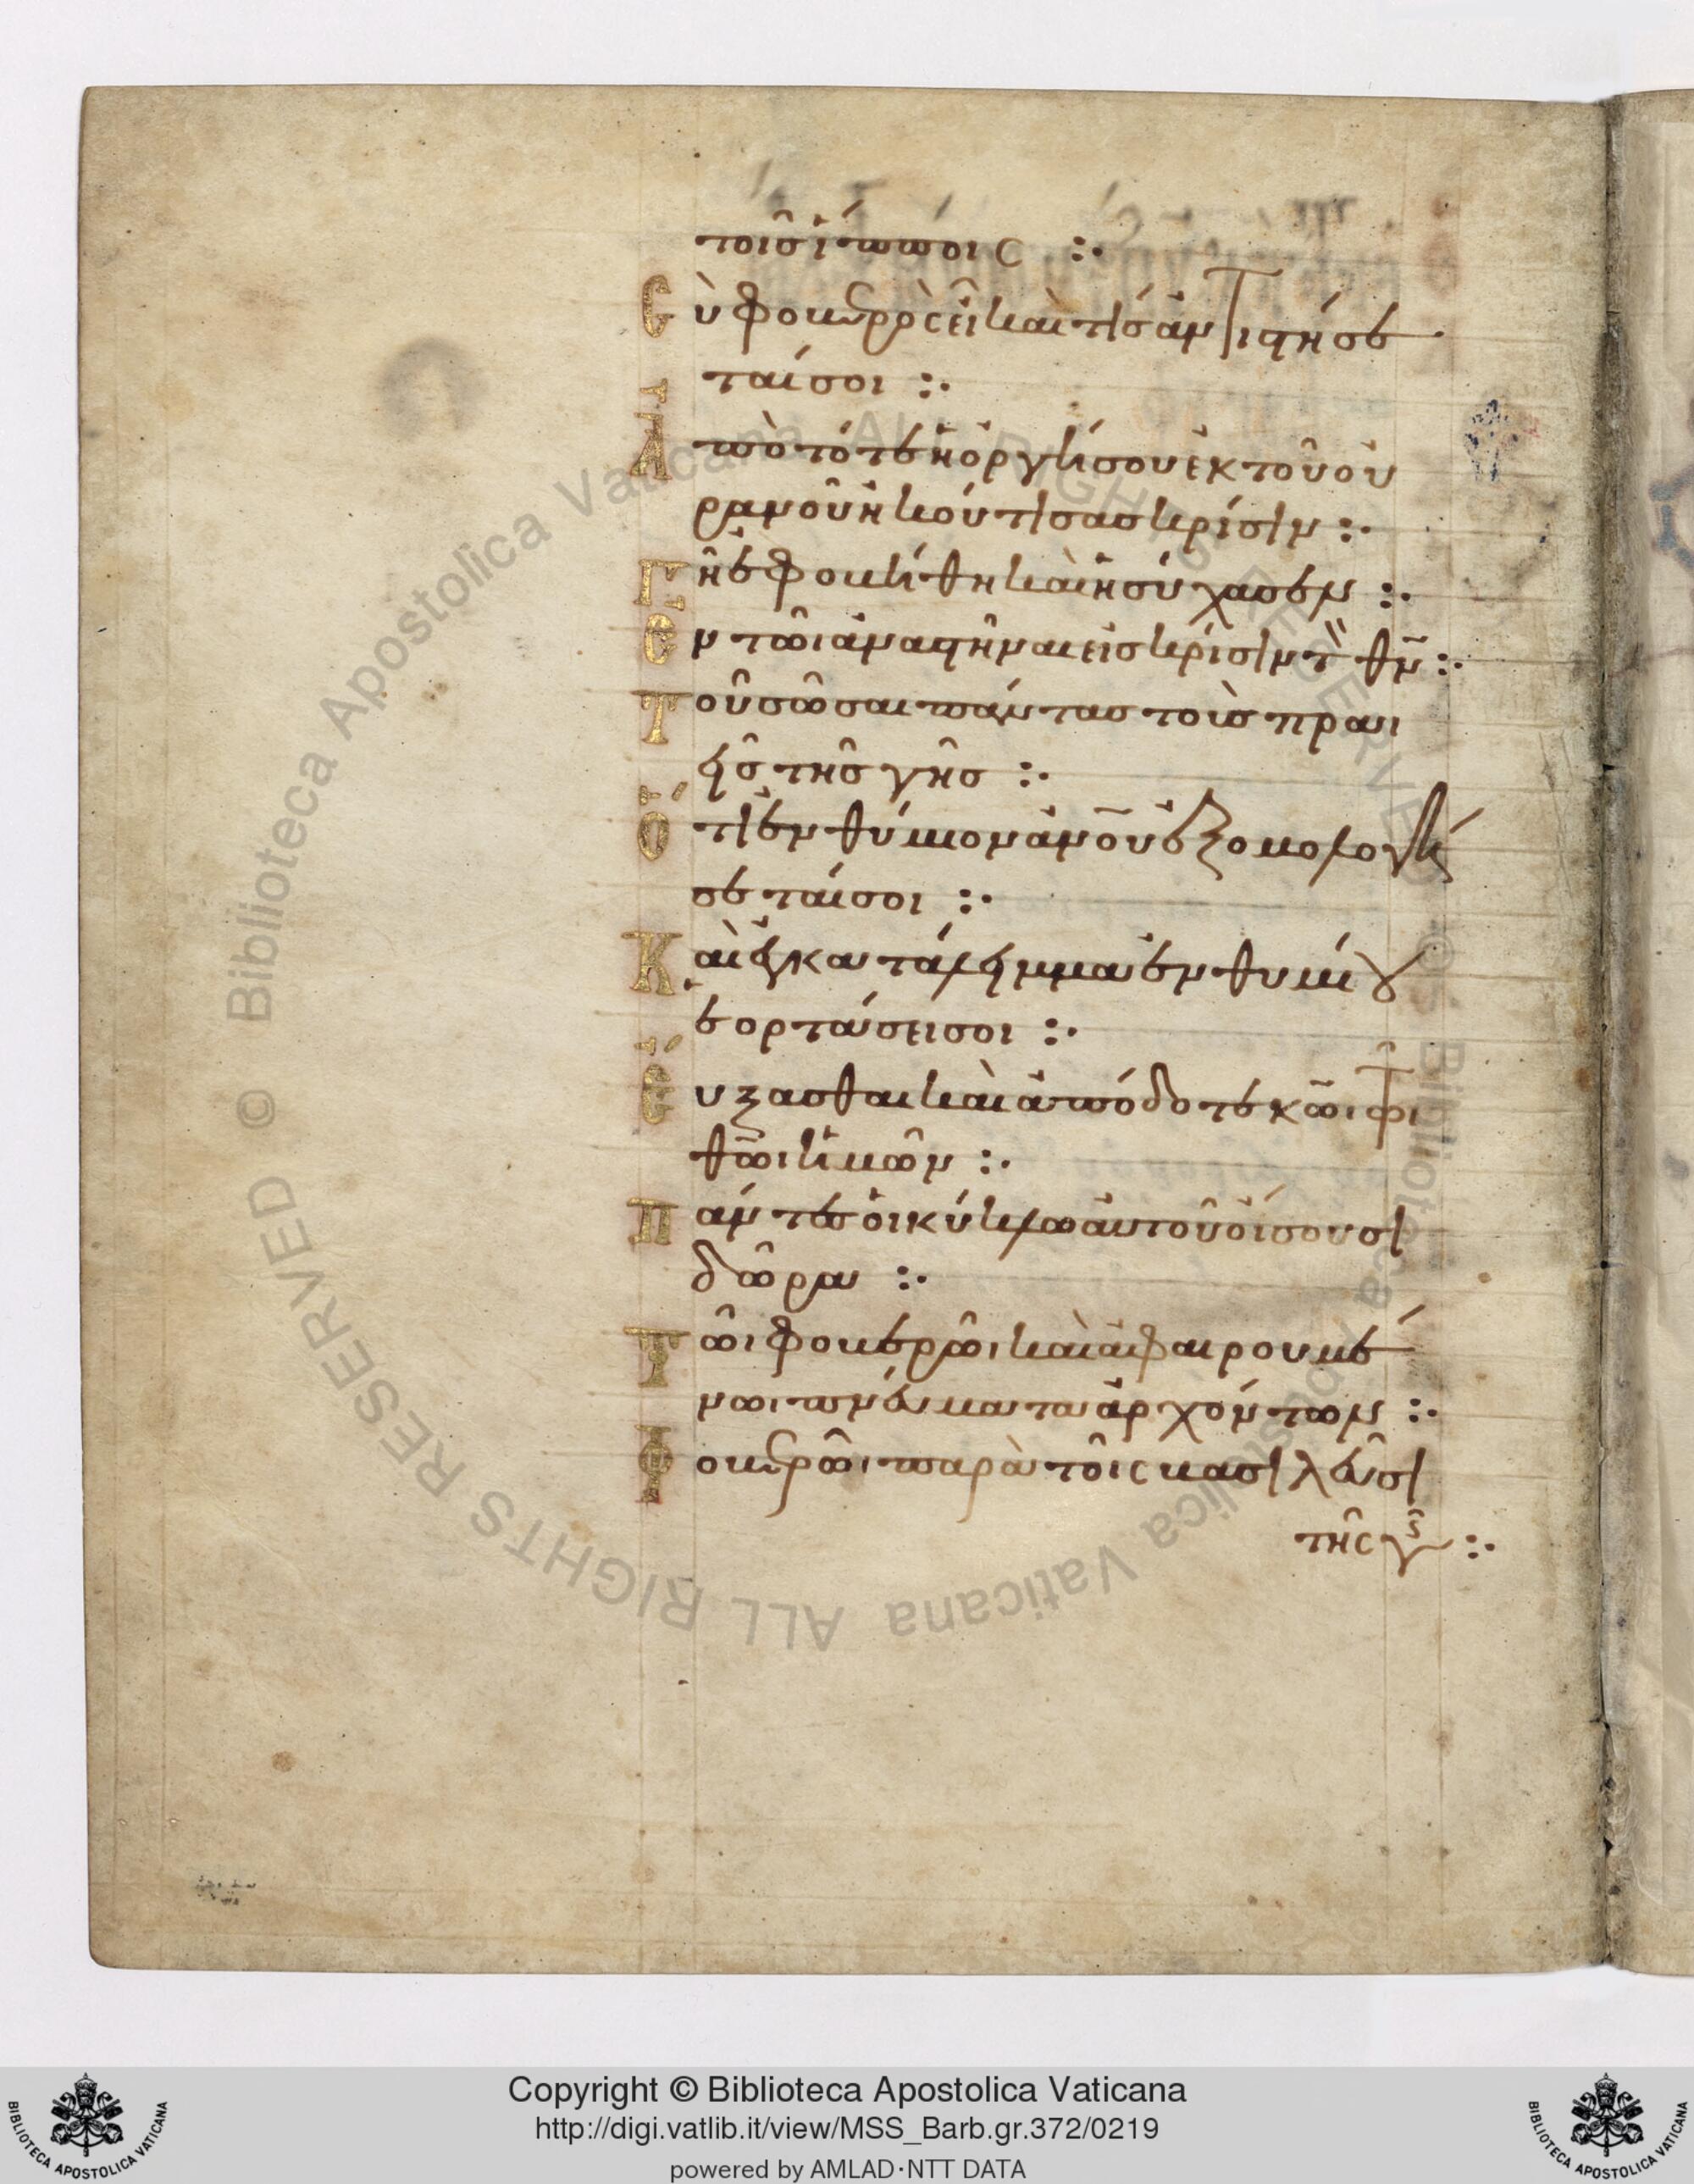 τοῖς ἵπποις :·
Σὺ φοβερὸς εἶ καὶ τίς ἀντιστήσε
ταί σοι :·
Ἀπὸ τότε ἡ ὀργή σου ἐκ τοῦ οὐ
ρανοῦ ἠκούτισας κρίσιν :·
Γῆ ἐφοβήθη καὶ ἡσύχασεν :·
Ἐν τῶι ἀναστῆναι εἰς κρίσιν τ̏ θν̅ :·
Τοῦ σῶσαι πάντας τοὺς πρα
εῖς τῆς γῆς :·
Ὅτι ἐνθύμιον ἀνο̅υ ἐξομολογή
σεταί σοι :·
Καὶ ἐγκατάλειμμα ἐνθυμίου
ἑορτάσει σοι :·
Εὔξασθε καὶ ἀπόδοτε κ̅ωι τῶι
θ̅ωι ἡμῶν :·
Πάντες οἱ κύκλω αὐτοῦ οἴσουσι
δῶρα :·
Τῶι φοβερῶι καὶ ἀφαιρουμέ
νωι πνεύματα ἀρχόντων :·
Φοβερῶι παρὰ τοῖς βασιλεῦσι
τῆς γῆς :·
Copyright © Biblioteca Apostolica Vaticana
http://digi.vatlib.it/view/MSS_Barb.gr.372/0219
powered by AMLAD·NTT DATA
BIBLIOTECA APOSTOLICA VATICANA
BIBLIOTECA APOSTOLICA VATICANA
© Biblioteca Apostolica Vaticana ALL RIGHTS RESERVED
© Biblioteca Apostolica Vaticana ALL RIGHTS RESERVED